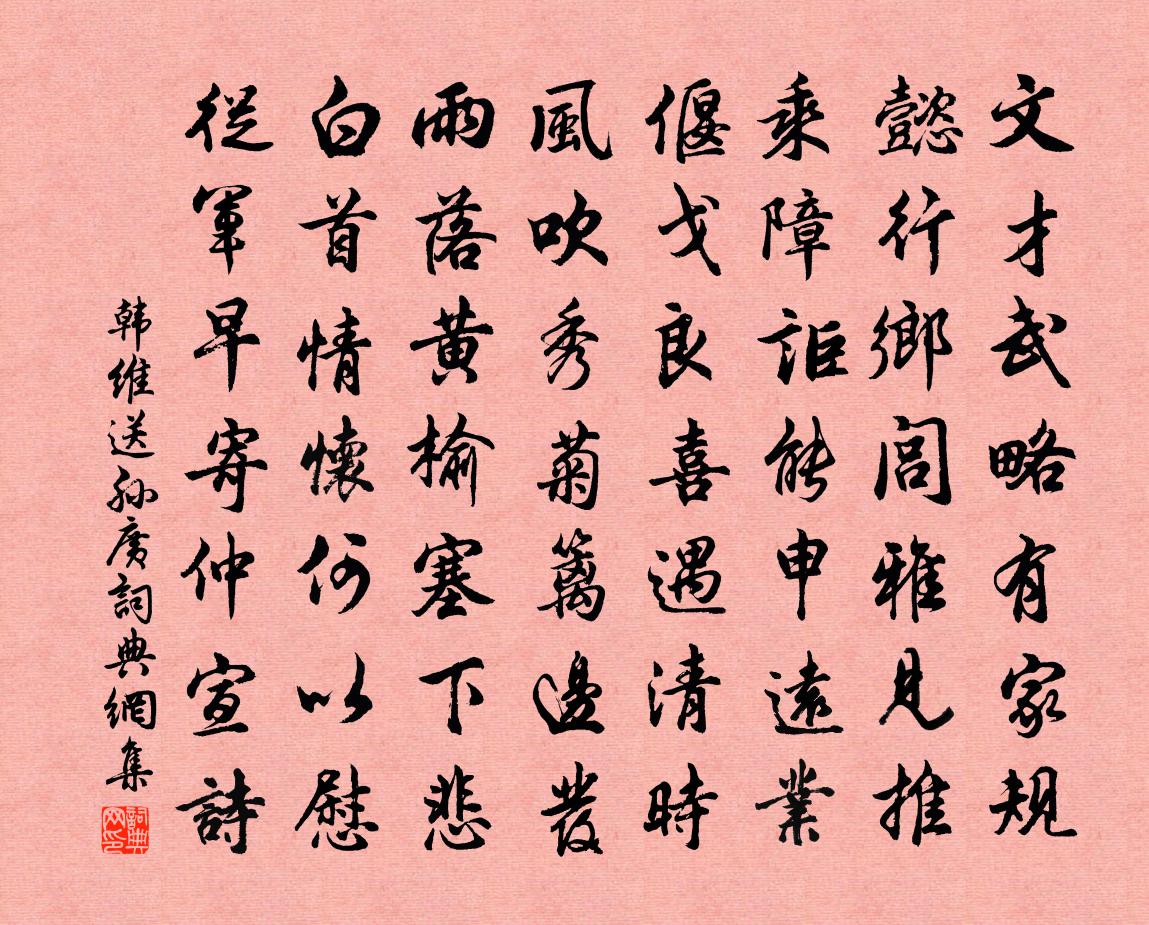 文才武略有家規
懿行鄉閭雅見推
乘障詎能申遠業
偃戈良喜遇清時
風吹秀菊籬邊發
雨落黄榆塞下悲
白首情懷何以慰
從軍早寄仲宣詩
韩維送孫廣詞典網集
詞典
网印